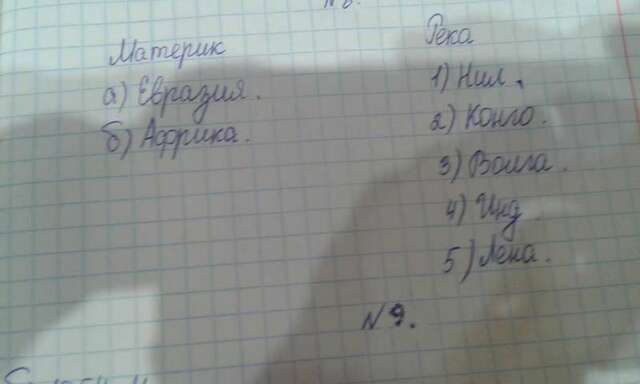 Материк
а) Евразия.
б) Африка.
Река
1) Нил.
2) Конго.
3) Волга.
4) Инд
5) Лена.
№ 9.